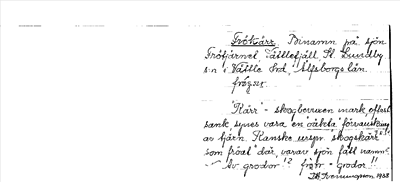 Frökärr. Binamn på sjön
Frötjärnet, Vättlefjäll, St. Lundby
sn i Vättle hd, Älfsborgs län.
"Kärr" = skogbevuxen mark, oftast
sank synes vara en "oäkta" förvanskning
av tjärn. Kanske urspr. skogskärr
som "fröat" där, varav sjön fått namn.
Av grodor!? fröer = grodor!!
Iversungson 1938